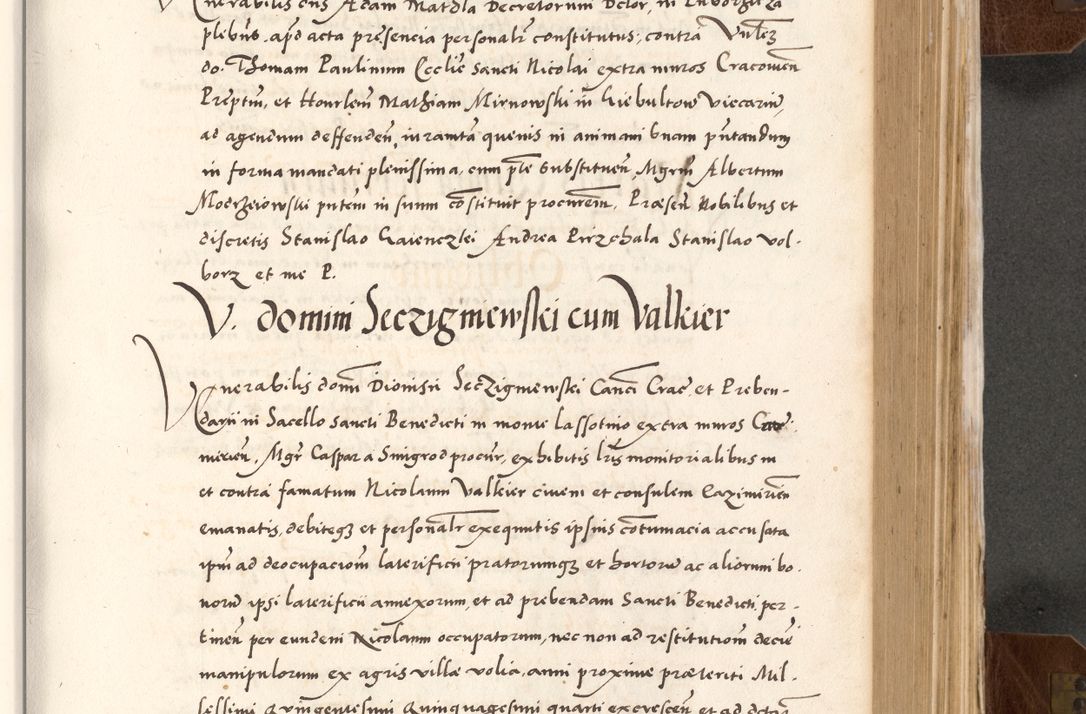 nerabilis dns Adam Mathla Decretorum Dctor, in
plebns, apd acta presencia personalr constitutus, contra Vnlez
do. Thomam Paulinum Ecclie sancti Nicolai extra muros Cracouien
Preptm, et Honrlem Mathiam Mirnowski in Giebultow viecarin,
ad agendum deffenden, iuramta queuis in animam suam prstandum
in forma mandati plenissima, cum ptte substituen, Mgrm Albertum
Modrzeiowski putem in suum constituit procurem, Præsen Nobilibus et
discretis Stanislao Gaienczki Andrea Pirzchala Stanislao vol-
borz et me P.
V. domini Seczigniewski cum Valkier
Venerabilis domi Dionisii Seczigniewski Canci Crac, et Preben-
darii in Sacello sancti Benedicti in monte lassotino extra muros
Mgr Caspar a Smigrod procur, exhibitis lris monitorialibus in
et contra famatum Nicolaum Valkier ciuem et consulem Cazimirien
emanatis, debiteqz et personalr exequutis ipsius contumacia accusata
ipm ad deocupaciom laterificii pratorumqz et hortorum ac aliorum bo-
norum ipsi laterificii annexorum, et ad prebendam Sancti Benedicti per-
tinen per eundem Nicolaum occupatorum, nec non ad restitutiom decie
manipulorum ex agris villæ volia, anni proxime præteriti Mil-
lessimi Quingentesimi Quinquagesimi quarti excrescen et ad